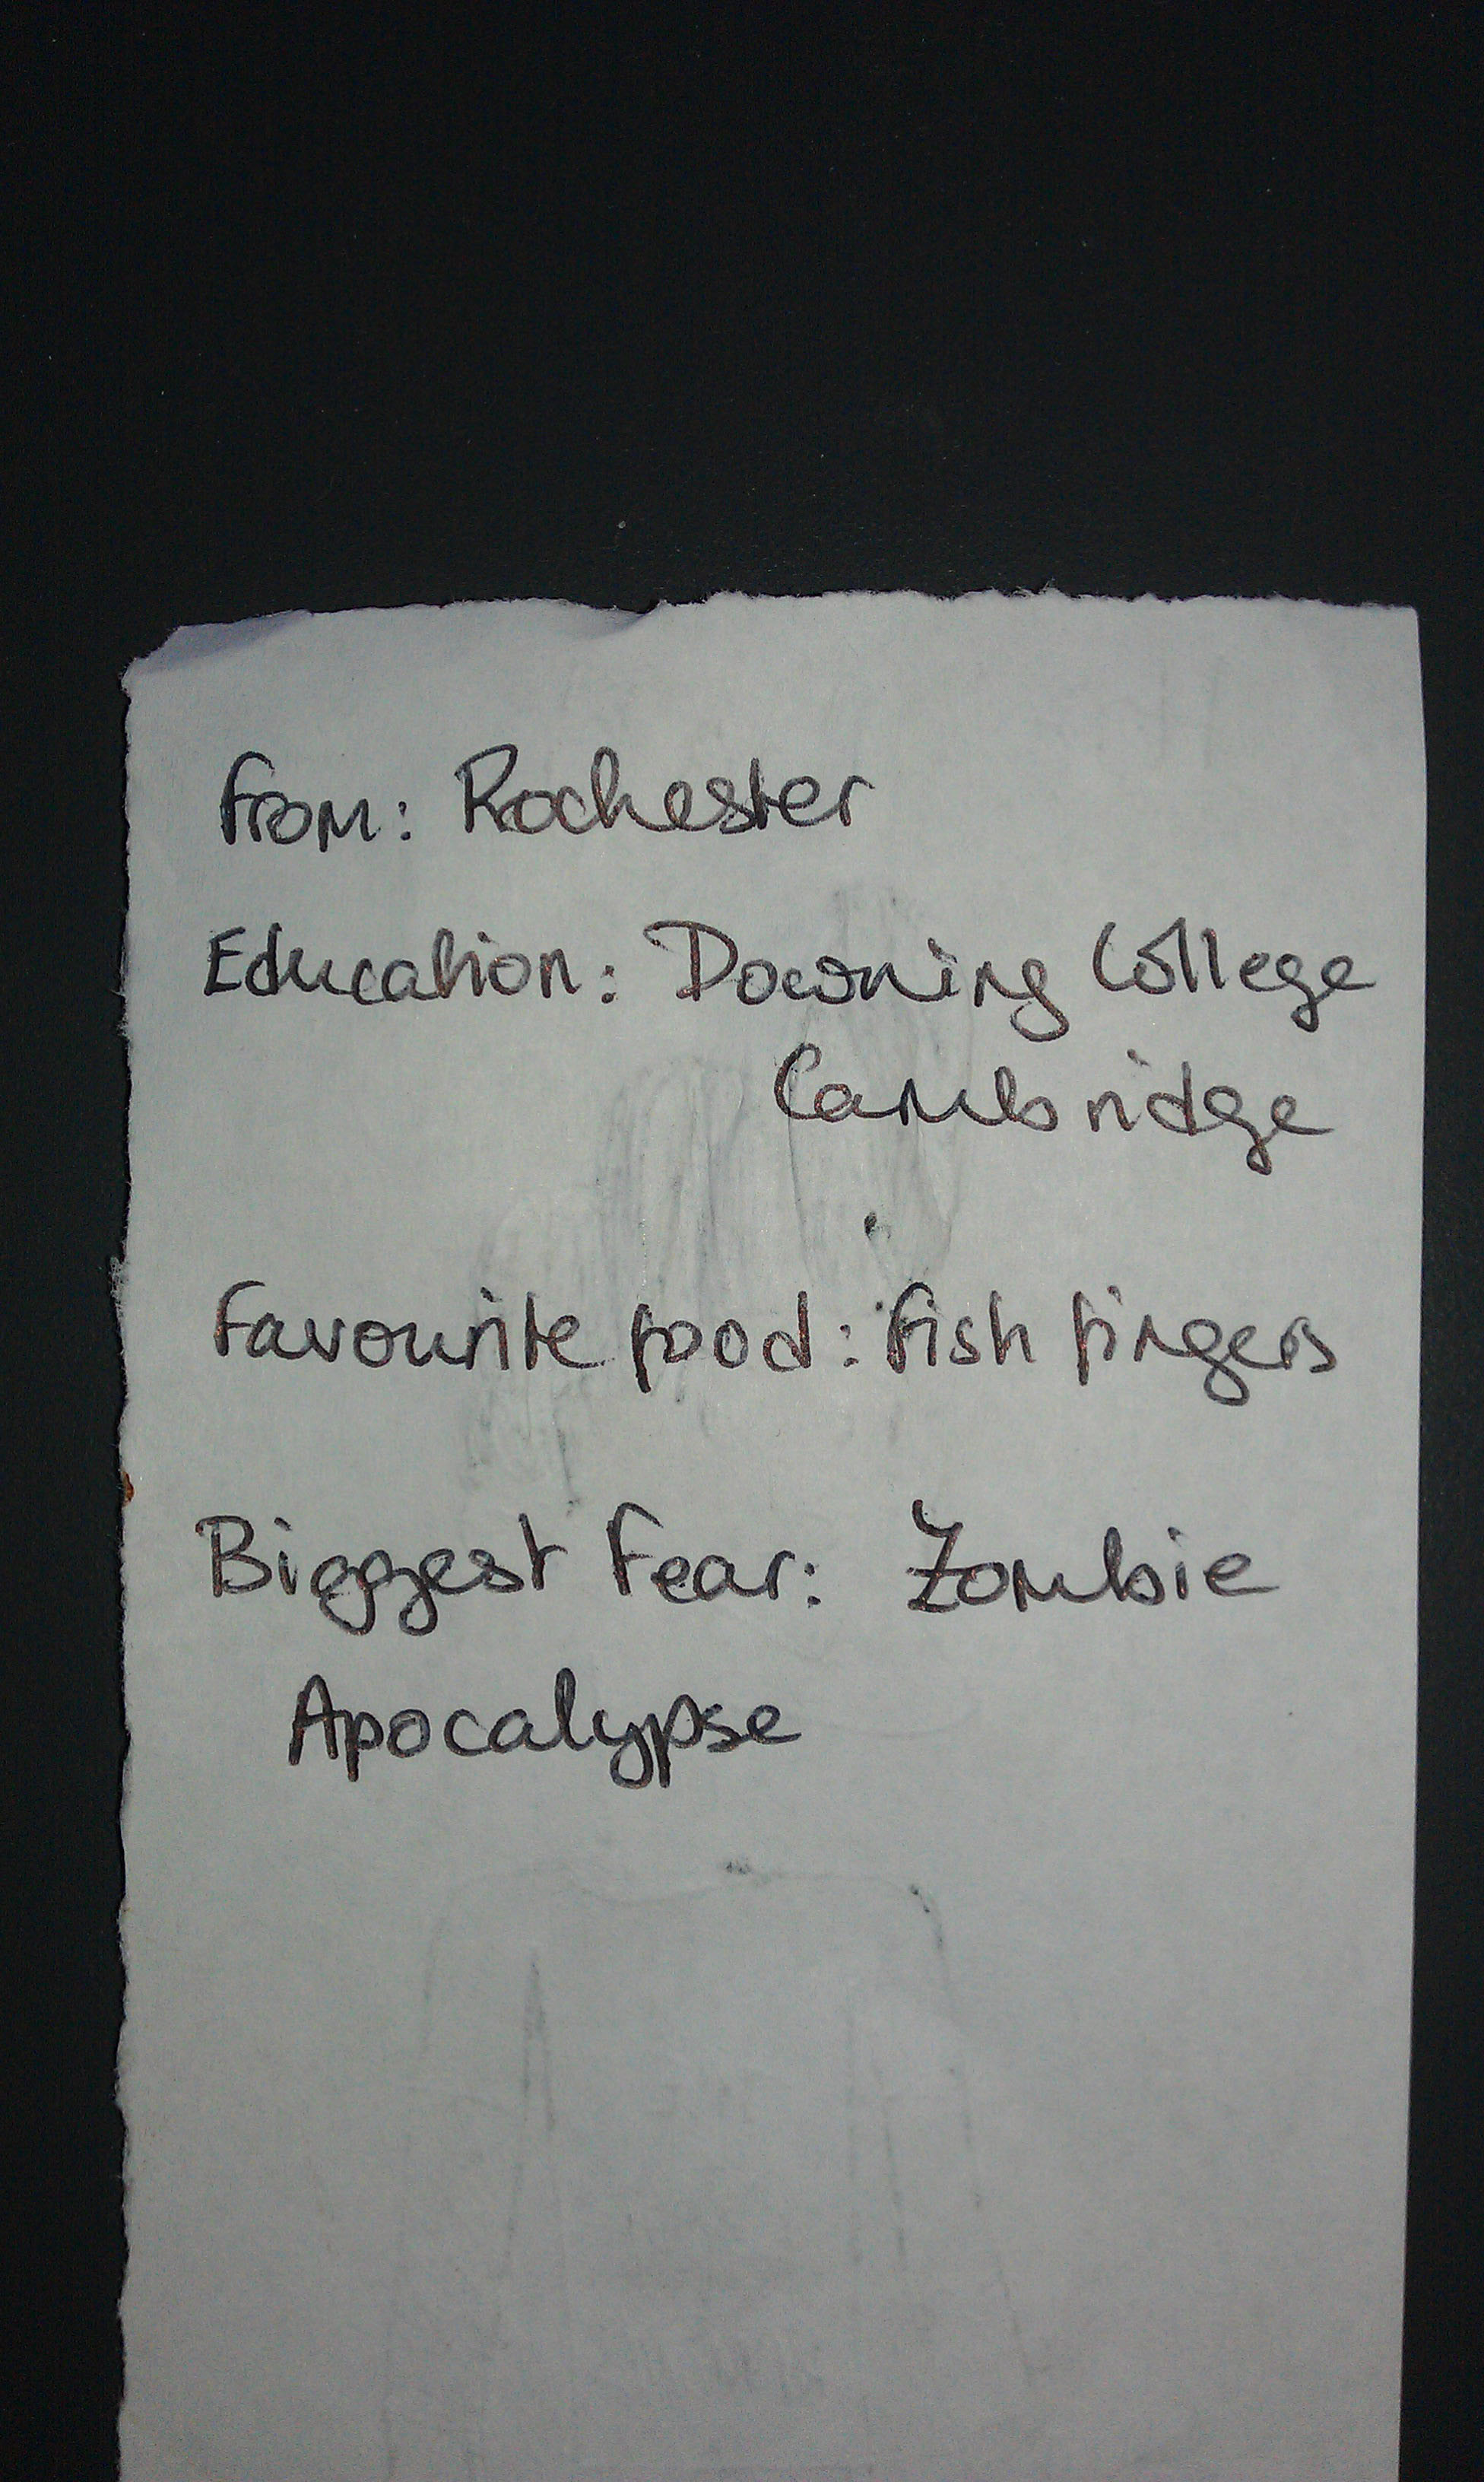 From: Rochester
Education: Downing College
Cambridge
Favourite food: Fish fingers
Biggest Fear: Zombie
Apocalypse